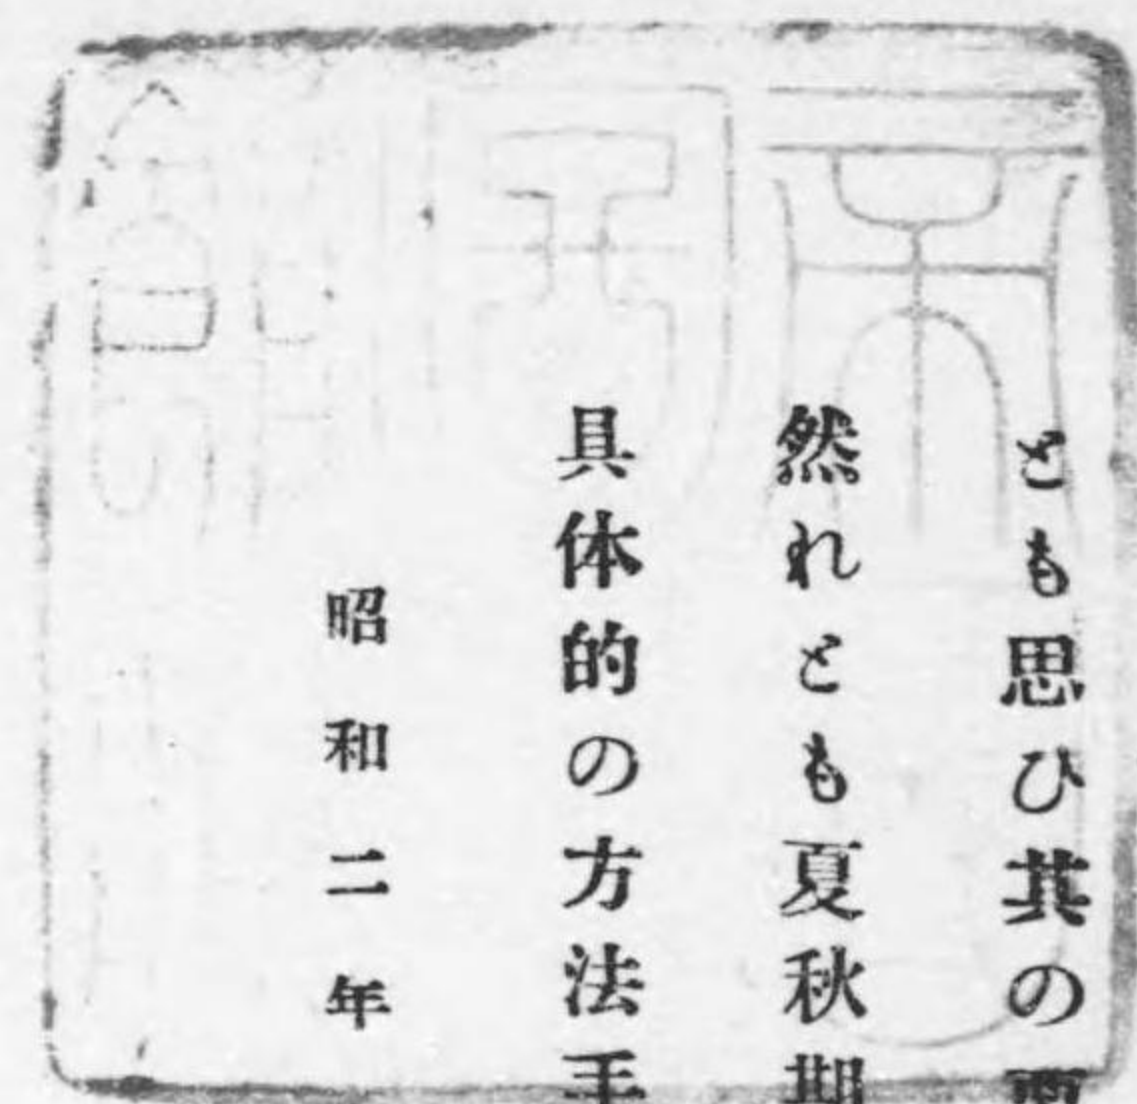 とも思ひ其の
然れとも夏秋期
具体的の方法手
昭和二年